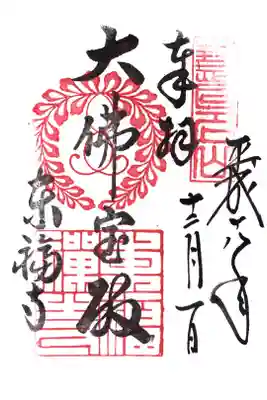 平成十八年
十二月一日
奉拝
大佛宝殿
東福寺
東福禪寺